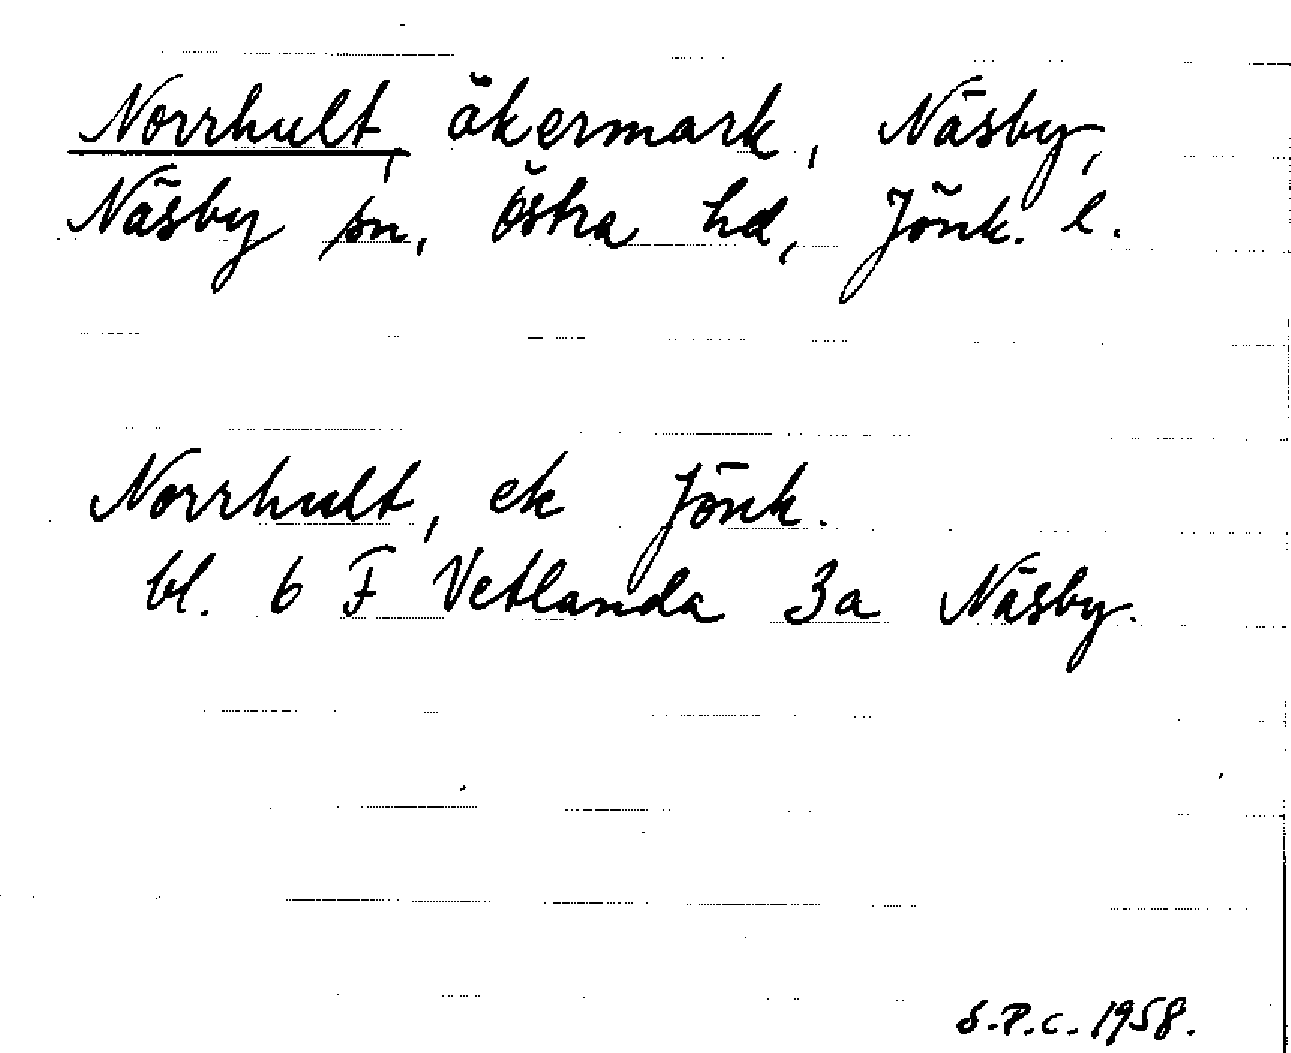 Norrhult, åkermark, Näsby,
Näsby sn, Östra hd, Jönk. l.
Norrhult, ek Jönk.
bl. 6 F Vetlanda 3a Näsby.
S.P.C. 1958.